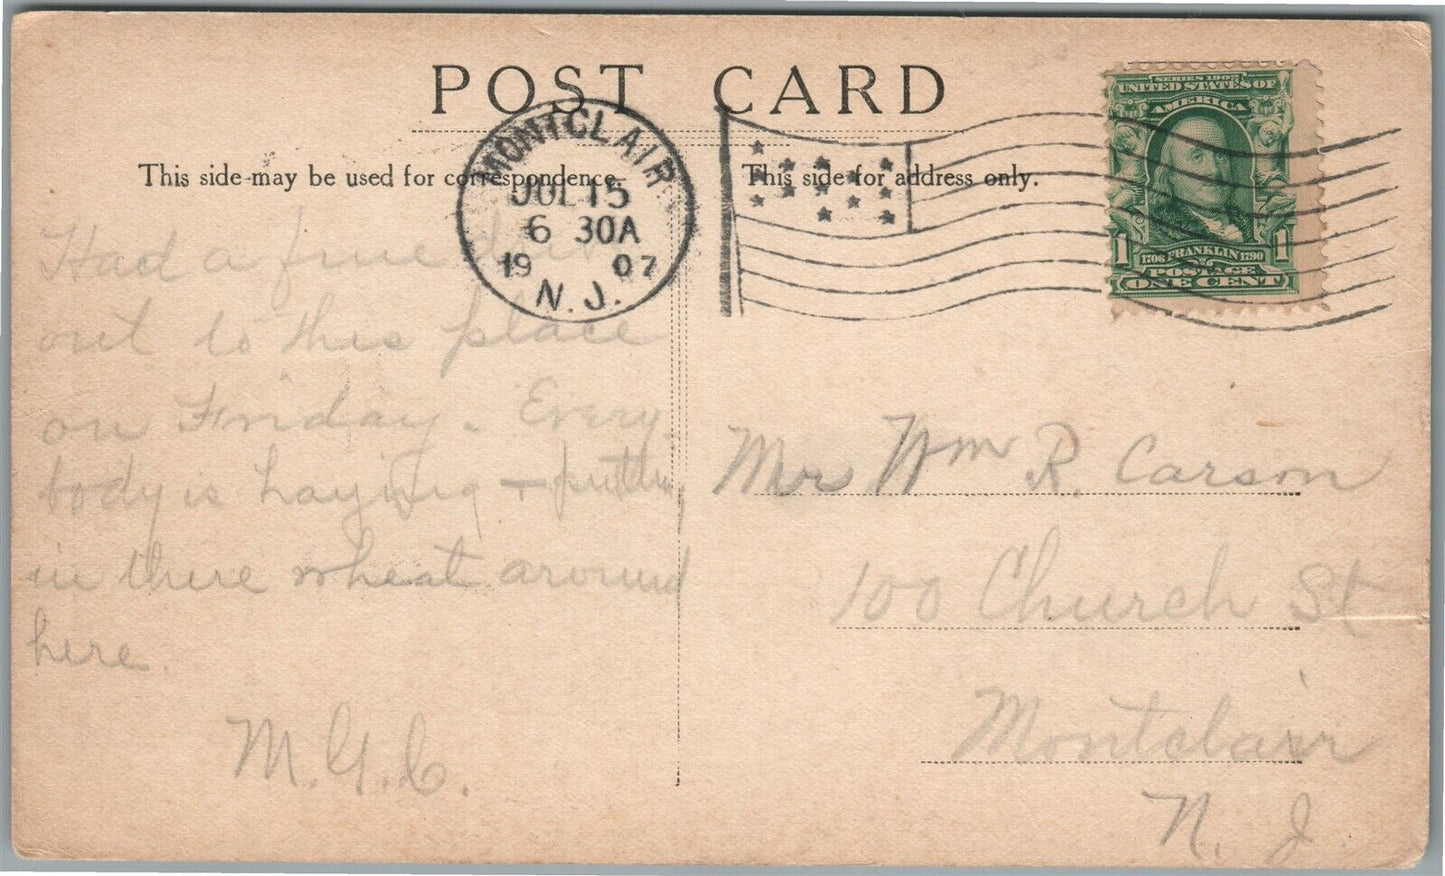 POST CARD
This side may be used for correspondence.
This side for address only.
MONTCLAIR
JUL 15
6 30A
19 07
N. J.
SERIES 1902
UNITED STATES OF
AMERICA
1 1706 FRANKLIN 1790 1
POSTAGE
ONE CENT
Had a fine
out to this place
on Finday. Every
body is haying – putting
in there wheat around
here.
M.G.C.
Mr Wm R. Carson
100 Church St
Montclair
N. J.